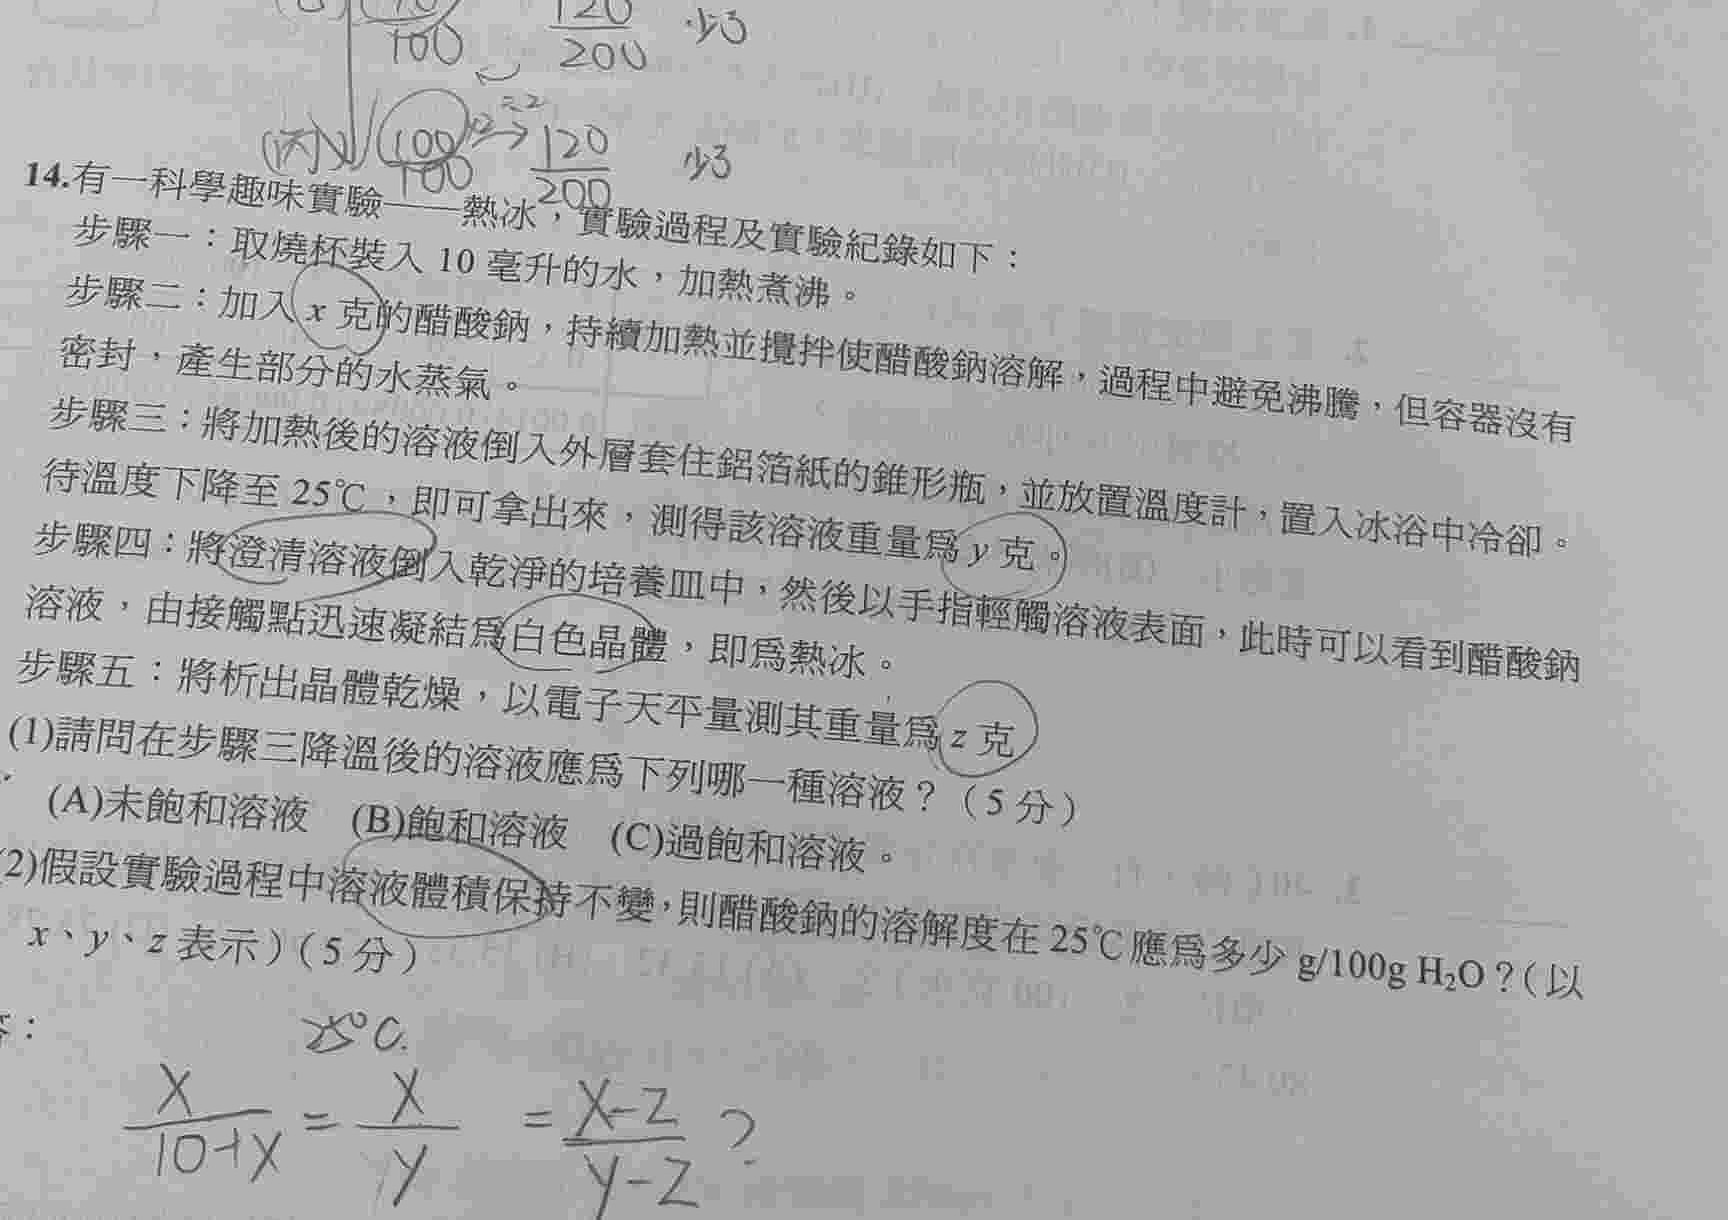 100 120 少了
200
(丙) 100 ×2 =2 → 120 少了
100 200
14.有一科學趣味實驗——熱冰，實驗過程及實驗紀錄如下：
步驟一：取燒杯裝入 10 毫升的水，加熱煮沸。
步驟二：加入 x 克的醋酸鈉，持續加熱並攪拌使醋酸鈉溶解，過程中避免沸騰，但容器沒有
密封，產生部分的水蒸氣。
步驟三：將加熱後的溶液倒入外層套住鋁箔紙的錐形瓶，並放置溫度計，置入冰浴中冷卻。
待溫度下降至 25℃，即可拿出來，測得該溶液重量為 y 克。
步驟四：將澄清溶液倒入乾淨的培養皿中，然後以手指輕觸溶液表面，此時可以看到醋酸鈉
溶液，由接觸點迅速凝結為白色晶體，即為熱冰。
步驟五：將析出晶體乾燥，以電子天平量測其重量為 z 克
(1)請問在步驟三降溫後的溶液應為下列哪一種溶液？（5 分）
(A)未飽和溶液 (B)飽和溶液 (C)過飽和溶液。
(2)假設實驗過程中溶液體積保持不變，則醋酸鈉的溶解度在 25℃應為多少 g/100g H₂O？（以
x、y、z 表示）（5 分）
答：
25°C.
x/10+x = x/y = x-z/y-z ?